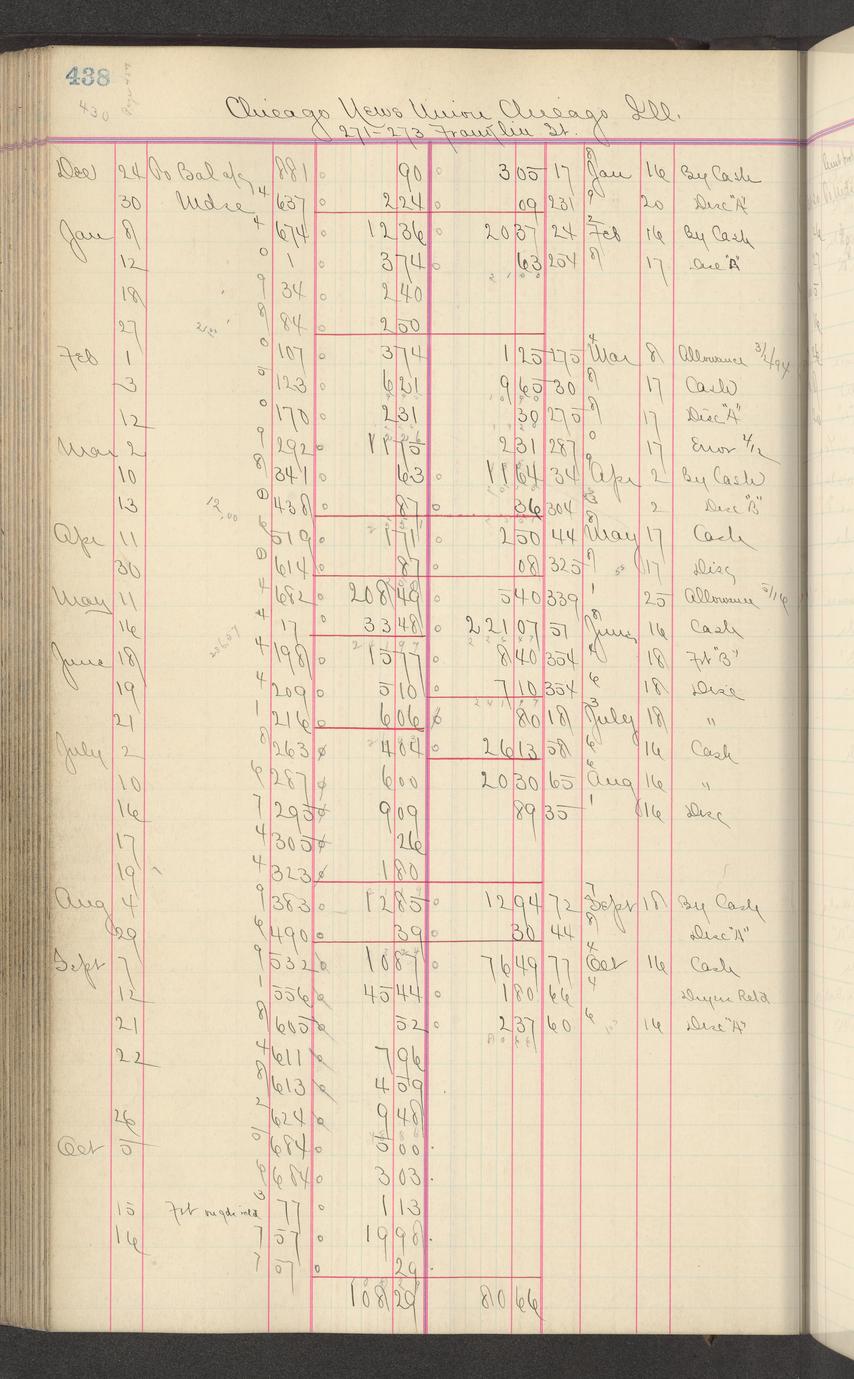 438
430
Chicago News Union Chicago Ill.
271-273 Franklin St.
Dec 24 To Bal dg 881 90 305 17 8 Jan 16 By Cash
30 Mdse 4 637 2 24 09 231 9 20 Disc "A"
Jan 8 4 674 12 36 20 37 24 2 Feb 16 By Cash
12 0 1 3 74 63 254 8 17 Disc "A"
18 9 34 2 40
27 8 84 2 50
Feb 1 0 107 3 74 1 25 275 4 Mar 8 Allowance 3/2/94
3 5 123 6 21 9 65 30 8 17 Cash
12 0 170 2 31 30 275 8 17 Disc "A"
Mar 2 9 292 11 75 2 31 287 0 17 Error 4/12
10 8 341 63 11 64 34 9 Apr 2 By Cash
13 0 438 87 36 304 3 2 Disc "B"
Apr 11 6 519 1 71 2 50 44 8 May 17 Cash
30 0 614 87 08 325 8 17 Disc
May 11 4 682 208 49 5 40 339 1 25 Allowance 5/16
16 4 17 33 48 221 07 51 8 June 16 Cash
June 18 4 198 15 77 8 40 354 4 18 Frt "B"
19 4 209 5 10 7 10 354 6 18 Disc
21 1 216 6 06 80 18 3 July 18 "
July 2 8 263 4 84 26 13 58 6 16 Cash
10 6 287 6 00 20 30 65 6 Aug 16 "
16 7 295 9 09 89 35 1 16 Disc
17 4 305 26
19 4 323 1 80
Aug 4 9 383 12 85 12 94 72 7 Sept 18 By Cash
29 6 490 39 30 44 8 Disc "A"
Sept 7 9 532 10 87 76 49 77 4 Oct 16 Cash
12 1 556 45 44 1 80 66 4 Retd
21 8 605 52 2 37 60 6 16 Disc "A"
22 4 611 7 96
8 613 4 59
26 2 624 9 48
Oct 5 5 684 5 00
6 684 3 03
15 Frt 3 77 1 13
16 7 57 19 98
7 57 29
108 29 80 66